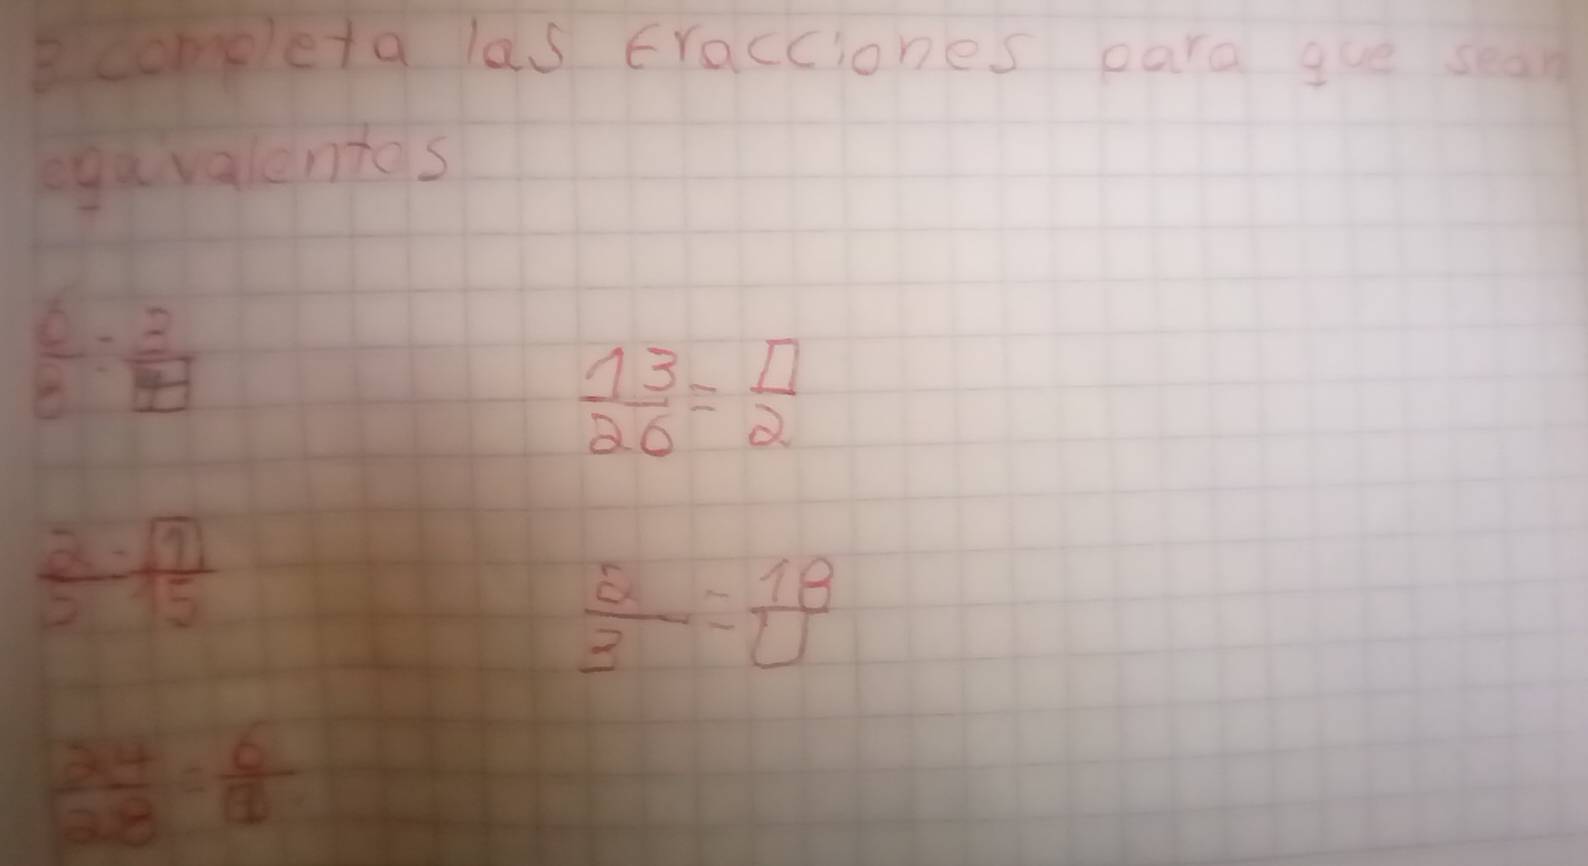 completa las fracciones para que sean
equivalentes
6/8 = 2/□
13/26 = □/2
2/5 = □/5
2/3 = 18/□
24/28 = 6/□